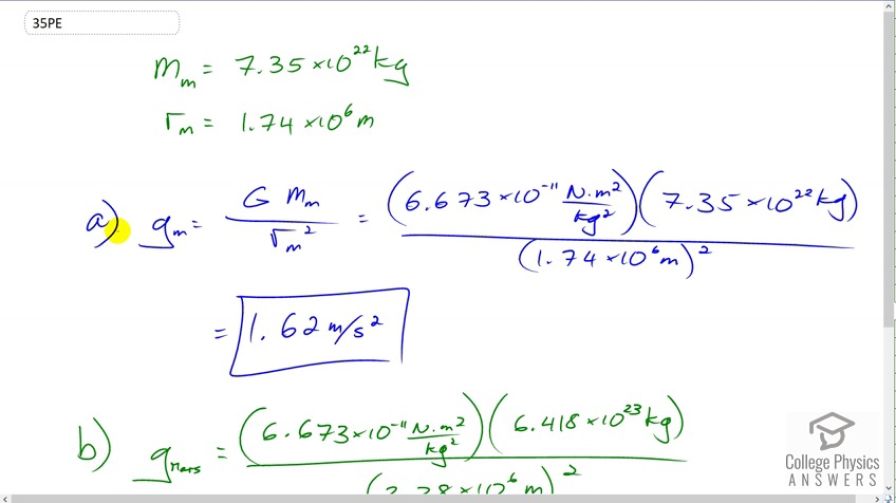 35PE
m_m = 7.35 × 10^22 kg
r_m = 1.74 × 10^6 m
a) g_m = G m_m / r_m^2 = (6.673 × 10^-11 N·m^2/kg^2)(7.35 × 10^22 kg) / (1.74 × 10^6 m)^2
= 1.62 m/s^2
b) g_mars = (6.673 × 10^-11 N·m^2/kg^2)(6.418 × 10^23 kg)
× 10^6 m)^2
College Physics
ANSWERS